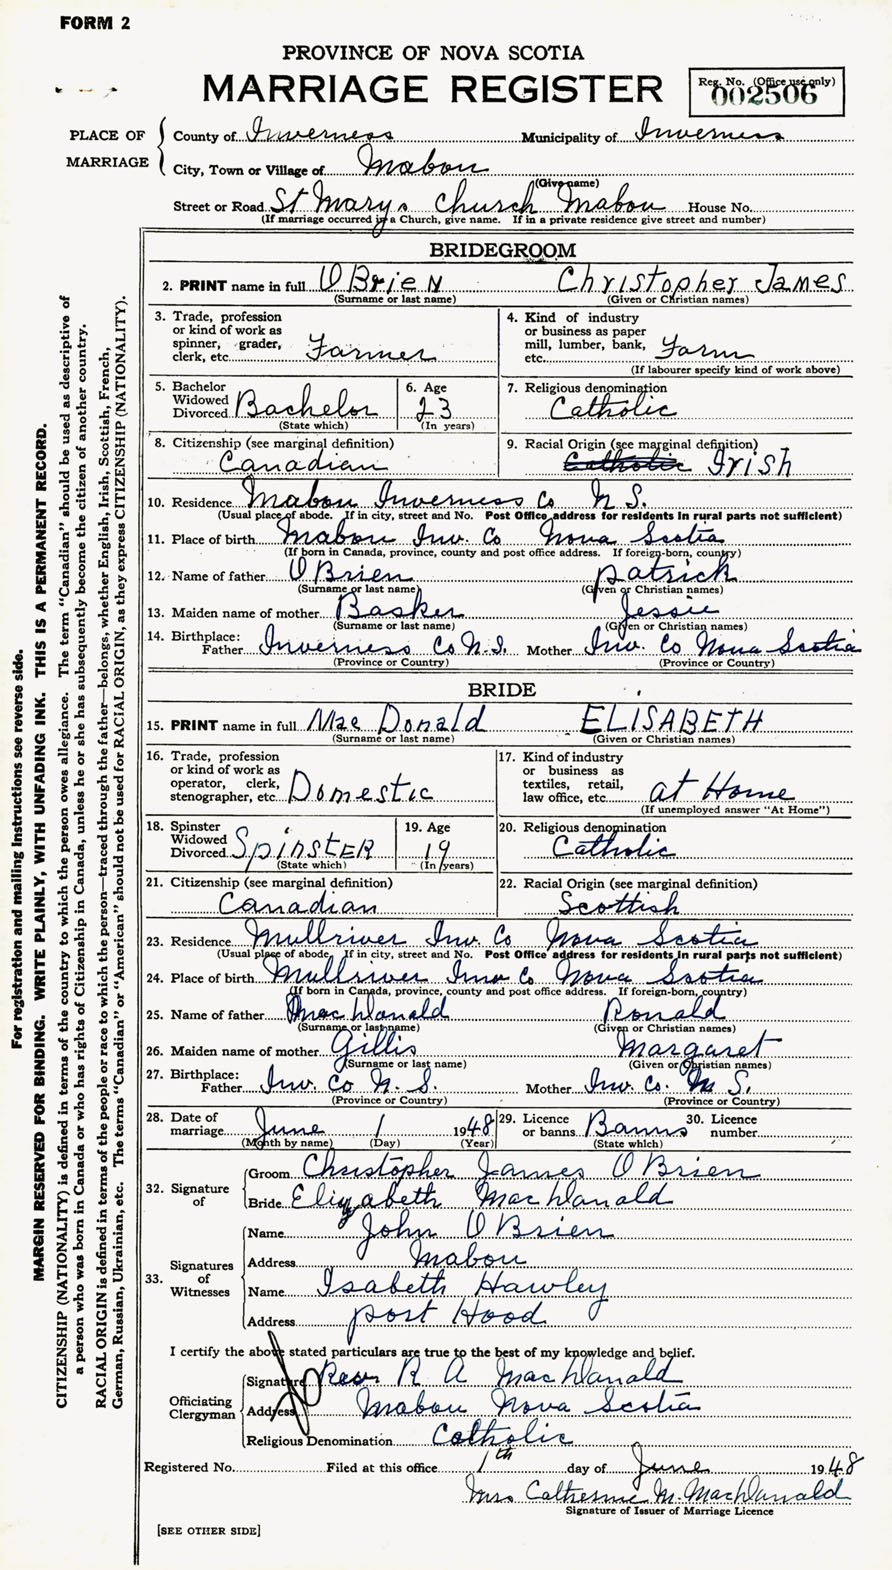 FORM 2
PROVINCE OF NOVA SCOTIA
MARRIAGE REGISTER
Reg. No. (Office use only)
002506
PLACE OF MARRIAGE
County of Inverness Municipality of Inverness
City, Town or Village of Mabou
(Give name)
Street or Road St Marys Church Mabou House No.
(If marriage occurred in a Church, give name. If in a private residence give street and number)
BRIDEGROOM
2. PRINT name in full O'Brien Christopher James
(Surname or last name) (Given or Christian names)
3. Trade, profession or kind of work as spinner, grader, clerk, etc. Farmer
4. Kind of industry or business as paper mill, lumber, bank, etc. Farm
(If labourer specify kind of work above)
5. Bachelor Widowed Divorced Bachelor
(State which)
6. Age 23
(In years)
7. Religious denomination
Catholic
8. Citizenship (see marginal definition)
Canadian
9. Racial Origin (see marginal definition)
Catholic Irish
10. Residence Mabou Inverness Co N.S.
(Usual place of abode. If in city, street and No. Post Office address for residents in rural parts not sufficient)
11. Place of birth Mabou Inv. Co Nova Scotia
(If born in Canada, province, county and post office address. If foreign-born, country)
12. Name of father O'Brien Patrick
(Surname or last name) (Given or Christian names)
13. Maiden name of mother Basker Jessie
(Surname or last name) (Given or Christian names)
14. Birthplace:
Father Inverness Co N.S. Mother Inv. Co Nova Scotia
(Province or Country) (Province or Country)
BRIDE
15. PRINT name in full Mac Donald ELISABETH
(Surname or last name) (Given or Christian names)
16. Trade, profession or kind of work as operator, clerk, stenographer, etc. Domestic
17. Kind of industry or business as textiles, retail, law office, etc. at Home
(If unemployed answer "At Home")
18. Spinster Widowed Divorced SpinsTER
(State which)
19. Age 19
(In years)
20. Religious denomination
Catholic
21. Citizenship (see marginal definition)
Canadian
22. Racial Origin (see marginal definition)
Scottish
23. Residence Mullriver Inv. Co Nova Scotia
(Usual place of abode. If in city, street and No. Post Office address for residents in rural parts not sufficient)
24. Place of birth Mullriver Inv Co Nova Scotia
(If born in Canada, province, county and post office address. If foreign-born, country)
25. Name of father MacDonald Ronald
(Surname or last name) (Given or Christian names)
26. Maiden name of mother Gillis Margaret
(Surname or last name) (Given or Christian names)
27. Birthplace:
Father Inv. Co N.S. Mother Inv. Co. N S.
(Province or Country) (Province or Country)
28. Date of marriage June 1 1948
(Month by name) (Day) (Year)
29. Licence or banns Banns
(State which)
30. Licence number
32. Signature of
Groom Christopher James O'Brien
Bride Elizabeth MacDonald
33. Signatures of Witnesses
Name John O'Brien
Address Mabou
Name Isabeth Hawley
Address Port Hood
I certify the above stated particulars are true to the best of my knowledge and belief.
Officiating Clergyman
Signature Rev R A MacDonald
Address Mabou Nova Scotia
Religious Denomination Catholic
Registered No. Filed at this office 1th day of June 1948
Mrs Catherine M. MacDonald
Signature of Issuer of Marriage Licence
[SEE OTHER SIDE]
For registration and mailing instructions see reverse side.
MARGIN RESERVED FOR BINDING. WRITE PLAINLY, WITH UNFADING INK. THIS IS A PERMANENT RECORD.
CITIZENSHIP (NATIONALITY) is defined in terms of the country to which the person owes allegiance. The term "Canadian" should be used as descriptive of
a person who was born in Canada or who has rights of Citizenship in Canada, unless he or she has subsequently become the citizen of another country.
RACIAL ORIGIN is defined in terms of the people or race to which the person—traced through the father—belongs, whether English, Irish, Scottish, French,
German, Russian, Ukrainian, etc. The terms "Canadian" or "American" should not be used for RACIAL ORIGIN, as they express CITIZENSHIP (NATIONALITY).